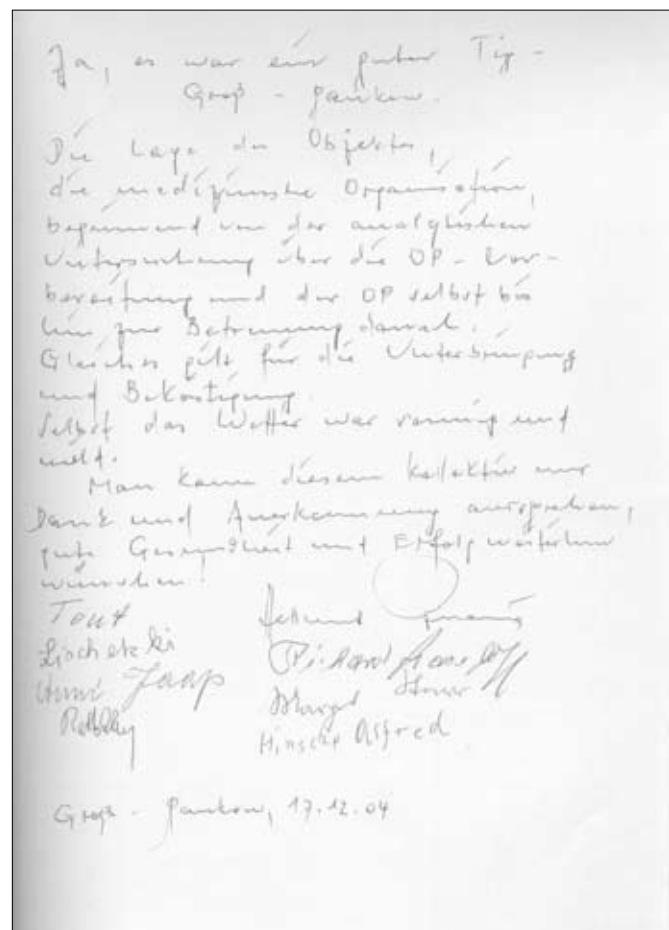 Ja, es war ein guter Tip -
Groß - Pankow.
Die Lage des Objektes,
die medizinische Organisation,
beginnend von der analytischen
Untersuchung über die OP - Vor-
bereitung und der OP selbst bis
hin zur Betreuung danach.
Gleiches gilt für die Unterbringung
und Beköstigung.
Selbst das Wetter war sonnig und
mild.
Man kann diesem Kollektiv nur
Dank und Anerkennung aussprechen,
gute Gesundheit und Erfolg weiterhin
wünschen!
Lischetzki
Richard
Jaap
Margot
Hinsche Alfred
Groß - Pankow, 17.12.04